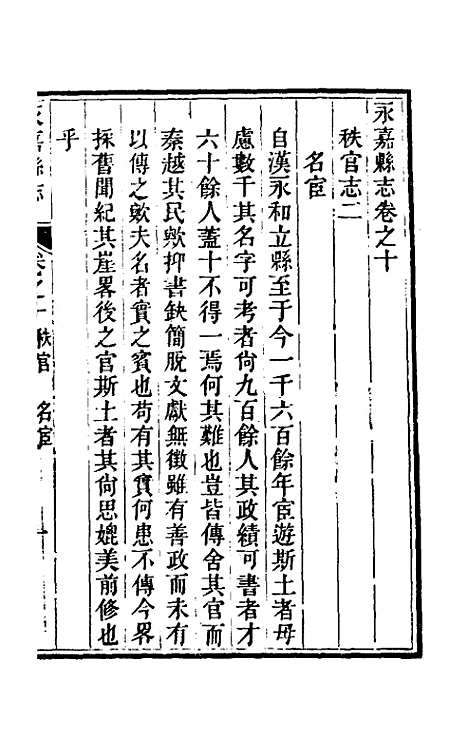 永嘉縣志卷之十
秩官志二
名宦
自漢永和立縣至于今一千六百餘年宦遊斯土者毋
慮數千其名字可考者尙九百餘人其政績可書者才
六十餘人蓋十不得一焉何其難也豈皆傳舍其官而
秦越其民歟抑書缺簡脫文獻無徵雖有善政而未有
以傳之歟夫名者實之賓也苟有其實何患不傳今畧
採舊聞紀其崖畧後之官斯土者其尙思媲美前修也
乎
永嘉縣志
卷之十 秩官 名宦